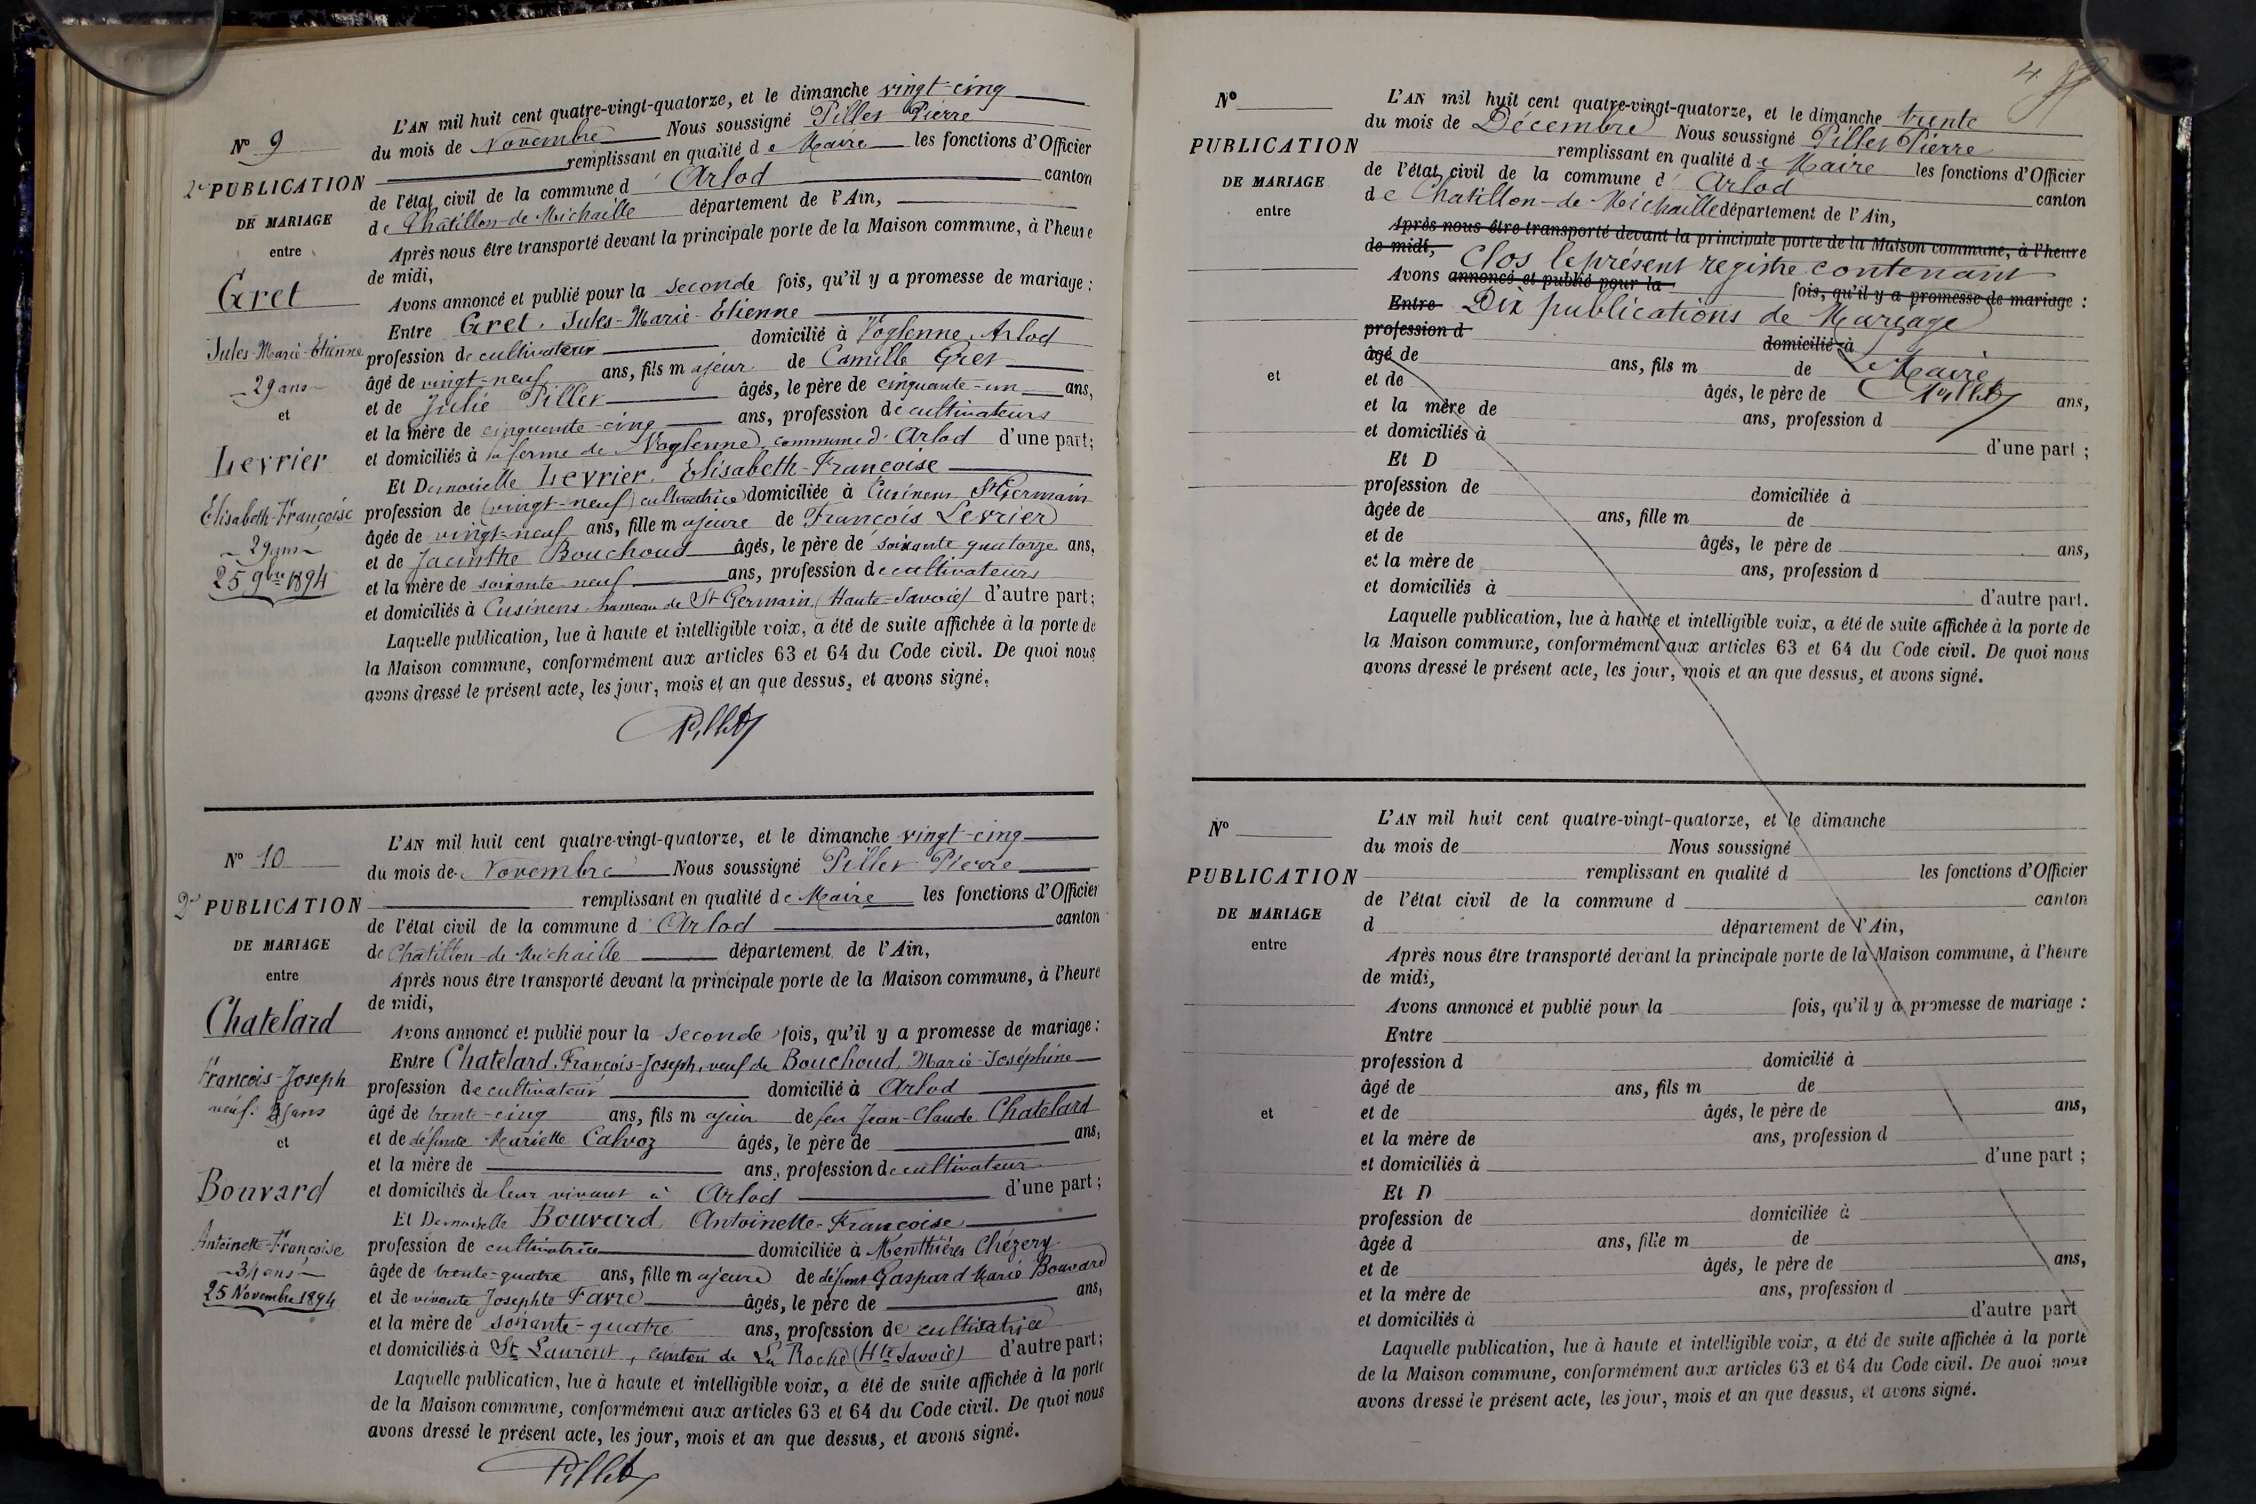 N° 9
2e PUBLICATION
DE MARIAGE
entre
Gret
Jules-Marie-Etienne
29 ans
et
Levrier
Elisabeth-Françoise
29 ans
25 9bre 1894
L'AN mil huit cent quatre-vingt-quatorze, et le dimanche vingt-cinq
du mois de Novembre Nous soussigné Pillet Pierre
remplissant en qualité de Maire les fonctions d'Officier
de l'état civil de la commune d'Arlod canton
de Chatillon de Michaille département de l'Ain,
Après nous être transporté devant la principale porte de la Maison commune, à l'heure
de midi,
Avons annoncé et publié pour la seconde fois, qu'il y a promesse de mariage :
Entre Gret, Jules-Marie-Etienne
profession de cultivateur domicilié à Voglenne, Arlod
âgé de vingt-neuf ans, fils majeur de Camille Gret
et de Julie Pillet âgés, le père de cinquante-un ans,
et la mère de cinquante-cinq ans, profession de cultivateurs
et domiciliés à la ferme de Voglenne, commune d'Arlod d'une part;
Et Demoiselle Levrier, Elisabeth-Françoise
profession de (vingt-neuf) cultivatrice domiciliée à Cusinens St Germain
âgée de vingt-neuf ans, fille majeure de François Levrier
et de Jacinthe Bouchoud âgés, le père de soixante quatorze ans,
et la mère de soixante neuf ans, profession de cultivateurs
et domiciliés à Cusinens, hameau de St Germain (Haute-Savoie) d'autre part;
Laquelle publication, lue à haute et intelligible voix, a été de suite affichée à la porte de
la Maison commune, conformément aux articles 63 et 64 du Code civil. De quoi nous
avons dressé le présent acte, les jour, mois et an que dessus, et avons signé.
Pillet
N° 10
2e PUBLICATION
DE MARIAGE
entre
Chatelard
François-Joseph
35 ans
et
Bouvard
Antoinette-Françoise
34 ans
25 Novembre 1894
L'AN mil huit cent quatre-vingt-quatorze, et le dimanche vingt-cinq
du mois de Novembre Nous soussigné Pillet Pierre
remplissant en qualité de Maire les fonctions d'Officier
de l'état civil de la commune d'Arlod canton
de Chatillon-de-Michaille département de l'Ain,
Après nous être transporté devant la principale porte de la Maison commune, à l'heure
de midi,
Avons annoncé et publié pour la seconde fois, qu'il y a promesse de mariage :
Entre Chatelard, François-Joseph, veuf de Bouchoud, Marie-Joséphine
profession de cultivateur domicilié à Arlod
âgé de trente-cinq ans, fils majeur de feu Jean-Claude Chatelard
et de défunte Mariette Calvoz âgés, le père de ans,
et la mère de ans, profession de cultivateur
et domiciliés de leur vivant à Arlod d'une part;
Et Demoiselle Bouvard Antoinette-Françoise
profession de cultivatrice domiciliée à Menthières Chézery
âgée de trente-quatre ans, fille majeure de défunt Gaspard Marie Bouvard
et de vivante Josephte Favre âgés, le père de ans,
et la mère de soixante-quatre ans, profession de cultivatrice
et domiciliés à St Laurent, canton de La Roche (Hte Savoie) d'autre part;
Laquelle publication, lue à haute et intelligible voix, a été de suite affichée à la porte
de la Maison commune, conformément aux articles 63 et 64 du Code civil. De quoi nous
avons dressé le présent acte, les jour, mois et an que dessus, et avons signé.
Pillet
4
N°
PUBLICATION
DE MARIAGE
entre
et
L'AN mil huit cent quatre-vingt-quatorze, et le dimanche trente
du mois de Décembre Nous soussigné Pillet Pierre
remplissant en qualité de Maire les fonctions d'Officier
de l'état civil de la commune d'Arlod canton
de Chatillon-de-Michaille département de l'Ain,
Après nous être transporté devant la principale porte de la Maison commune, à l'heure
de midi, Clos le présent registre contenant
Avons annoncé et publié pour la fois, qu'il y a promesse de mariage :
Entre Dix publications de Mariage
profession d domicilié à
âgé de ans, fils m de Le Maire
et de âgés, le père de Pillet ans,
et la mère de ans, profession d
et domiciliés à d'une part ;
Et D
profession de domiciliée à
âgée de ans, fille m de
et de âgés, le père de ans,
et la mère de ans, profession d
et domiciliés à d'autre part.
Laquelle publication, lue à haute et intelligible voix, a été de suite affichée à la porte de
la Maison commune, conformément aux articles 63 et 64 du Code civil. De quoi nous
avons dressé le présent acte, les jour, mois et an que dessus, et avons signé.
N°
PUBLICATION
DE MARIAGE
entre
et
L'AN mil huit cent quatre-vingt-quatorze, et le dimanche
du mois de Nous soussigné
remplissant en qualité d les fonctions d'Officier
de l'état civil de la commune d canton
d département de l'Ain,
Après nous être transporté devant la principale porte de la Maison commune, à l'heure
de midi,
Avons annoncé et publié pour la fois, qu'il y a promesse de mariage :
Entre
profession d domicilié à
âgé de ans, fils m de
et de âgés, le père de ans,
et la mère de ans, profession d
et domiciliés à d'une part ;
Et D
profession de domiciliée à
âgée d ans, fille m de
et de âgés, le père de ans,
et la mère de ans, profession d
et domiciliés à d'autre part
Laquelle publication, lue à haute et intelligible voix, a été de suite affichée à la porte
de la Maison commune, conformément aux articles 63 et 64 du Code civil. De quoi nous
avons dressé le présent acte, les jour, mois et an que dessus, et avons signé.